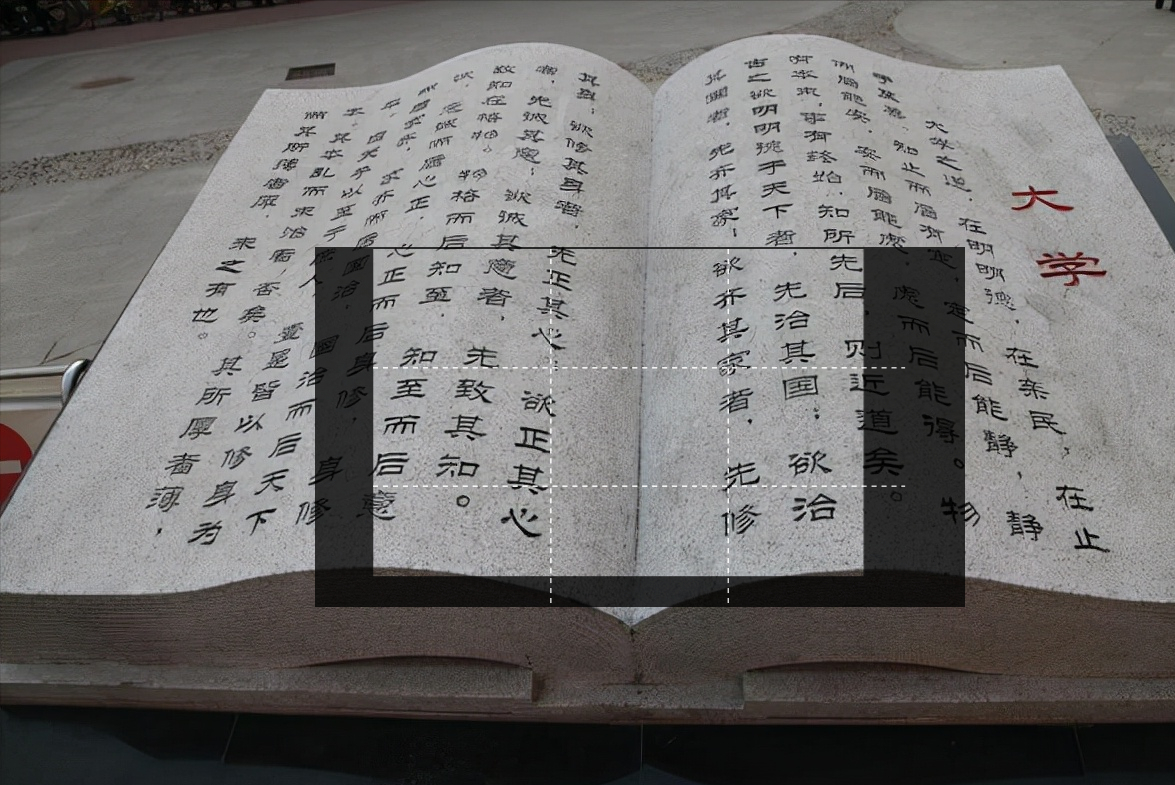 大学
大学之道,在明明德,在亲民,在止
于至善。知止而后有定,定而后能静,静
而后能安,安而后能虑,虑而后能得。物
有本末,事有终始,知所先后,则近道矣。
古之欲明明德于天下者,先治其国;欲治
其国者,先齐其家;欲齐其家者,先修
其身;欲修其身者,先正其心,欲正其心
者,先诚其意;欲诚其意者,先致其知。
致知在格物。物格而后知至,知至而后意
诚,意诚而后心正,心正而后身修,身修
而后家齐,家齐而后国治,国治而后天下
平。自天子以至于庶人,壹是皆以修身为
本。其本乱而末治者,否矣。其所厚者薄,
而其所薄者厚,未之有也。